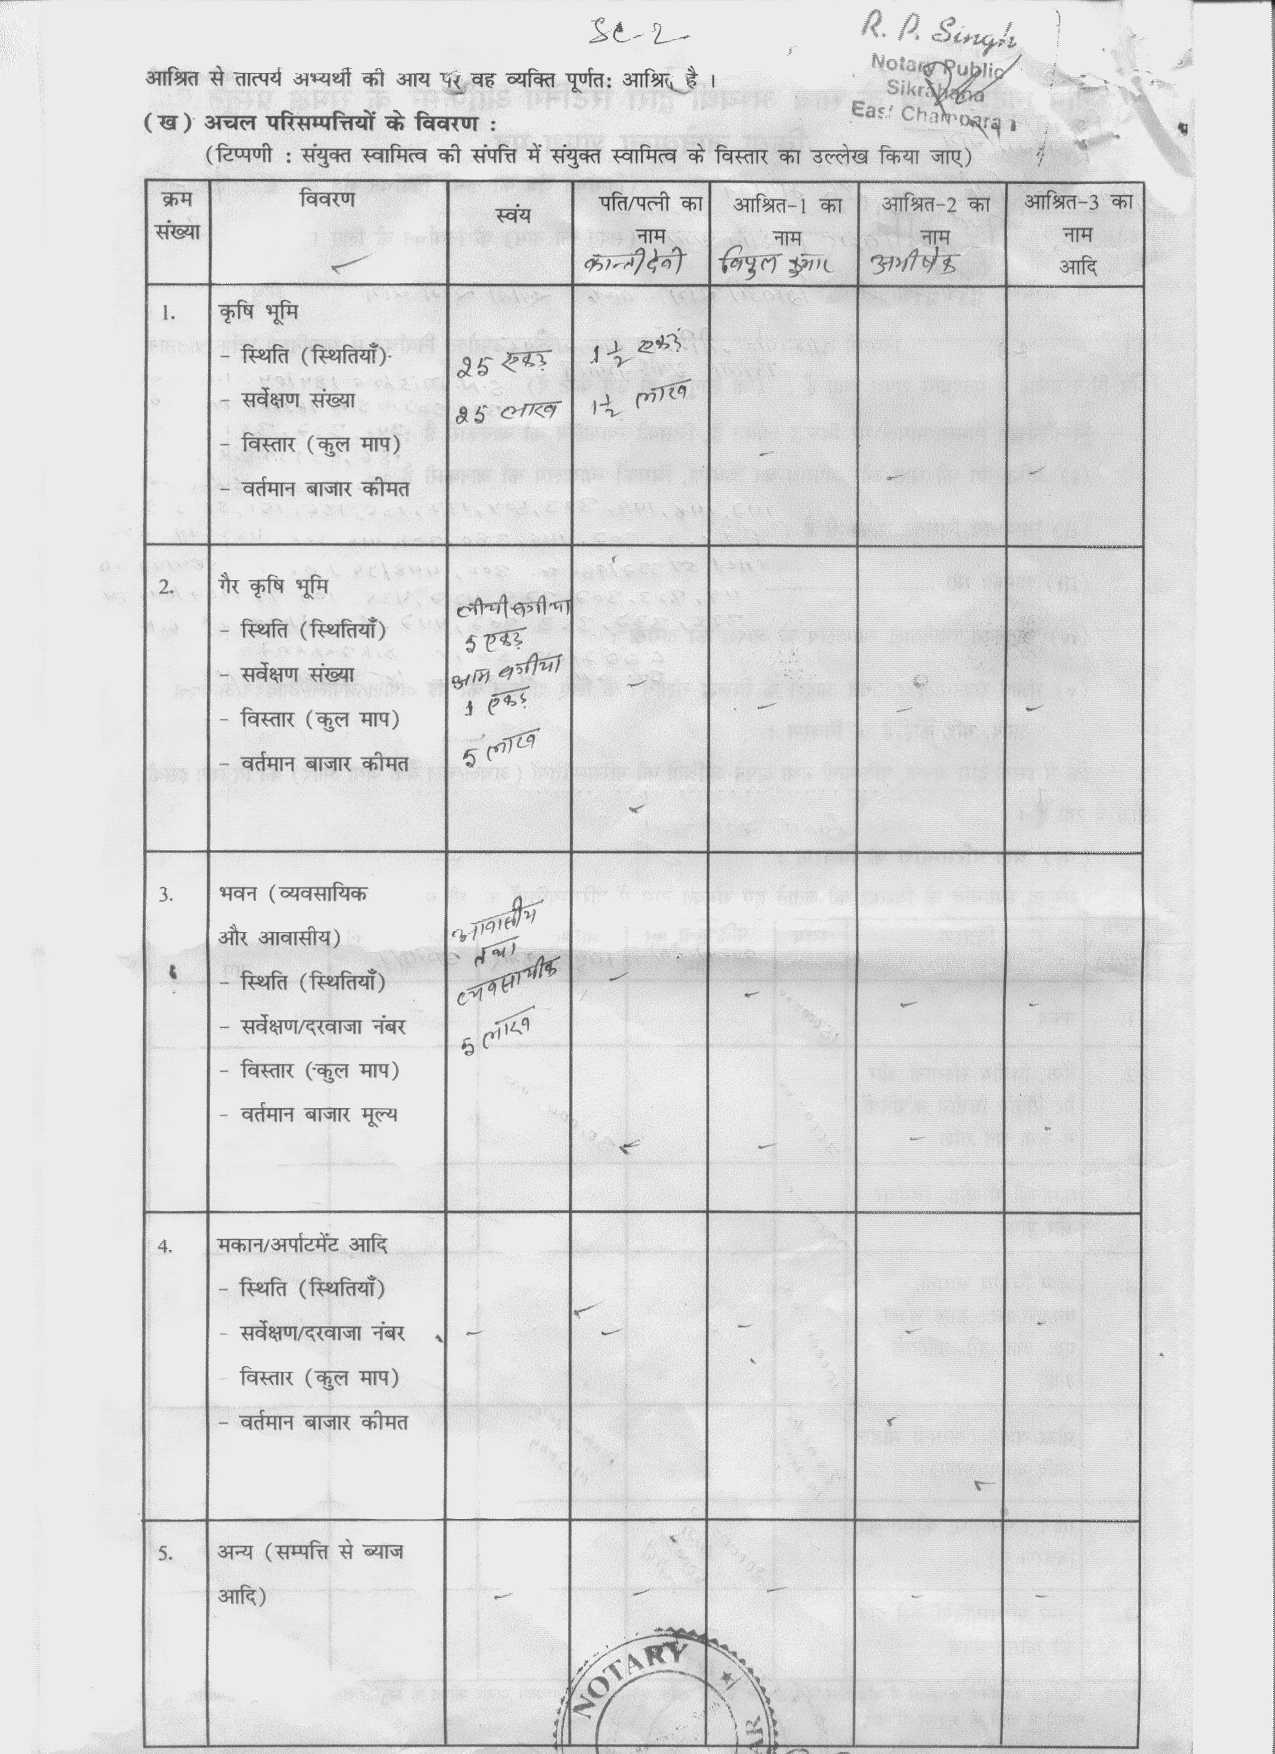 SC-2
R. P. Singh
Notary Public
Sikrahana
East Champaran
आश्रित से तात्पर्य अभ्यर्थी की आय पर वह व्यक्ति पूर्णत: आश्रित है ।
( ख ) अचल परिसम्पत्तियों के विवरण :
(टिप्पणी : संयुक्त स्वामित्व की संपत्ति में संयुक्त स्वामित्व के विस्तार का उल्लेख किया जाए)
क्रम संख्या
विवरण
स्वंय
पति/पत्नी का नाम
कान्ती देवी
आश्रित-1 का नाम
विपुल कुमार
आश्रित-2 का नाम
अभीषेक
आश्रित-3 का नाम आदि
1.
कृषि भूमि
- स्थिति (स्थितियाँ)
25 एकड़
1 1/2 एकड़
- सर्वेक्षण संख्या
25 लाख
1 1/2 लाख
- विस्तार (कुल माप)
- वर्तमान बाजार कीमत
2.
गैर कृषि भूमि
लीची बगीचा
- स्थिति (स्थितियाँ)
5 एकड़
- सर्वेक्षण संख्या
आम बगीचा
1 एकड़
- विस्तार (कुल माप)
5 लाख
- वर्तमान बाजार कीमत
3.
भवन (व्यवसायिक
और आवासीय)
आवासीय
तथा
- स्थिति (स्थितियाँ)
व्यवसायीक
- सर्वेक्षण/दरवाजा नंबर
5 लाख
- विस्तार (कुल माप)
- वर्तमान बाजार मूल्य
4.
मकान/अर्पाटमेंट आदि
- स्थिति (स्थितियाँ)
- सर्वेक्षण/दरवाजा नंबर
- विस्तार (कुल माप)
- वर्तमान बाजार कीमत
5.
अन्य (सम्पत्ति से ब्याज
आदि)
NOTARY